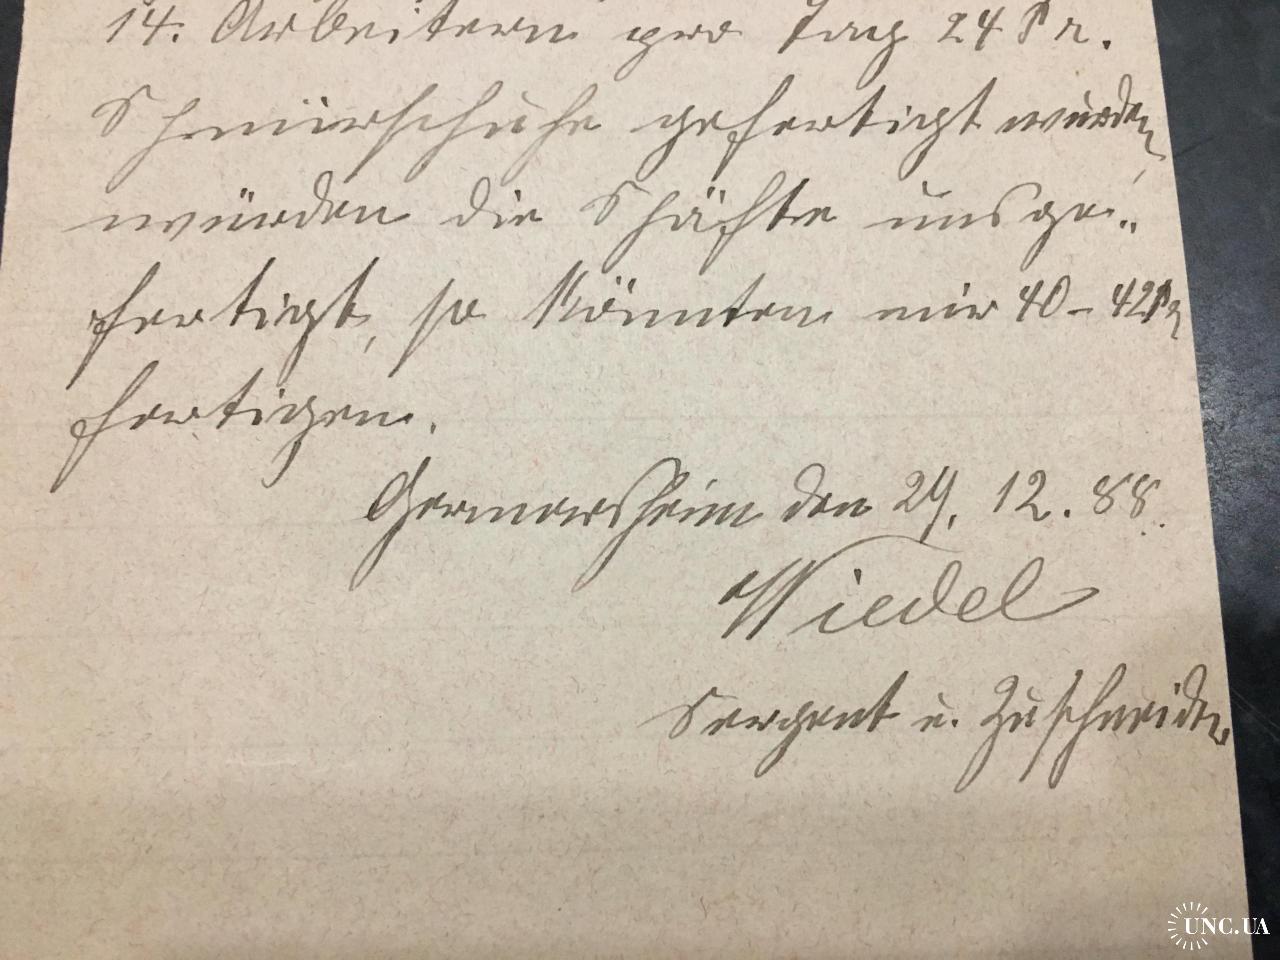 14. Arbeitern pro Tag 24 Pr.
Schnürschuhe gefertigt wurden,
würden die Schäfte uns ge„
fertigt, so könnten wir 40 – 42 Pr
fertigen.
Germersheim den 29. 12. 88.
Wiedel
Sergent u. Zuschneider
UNC.UA